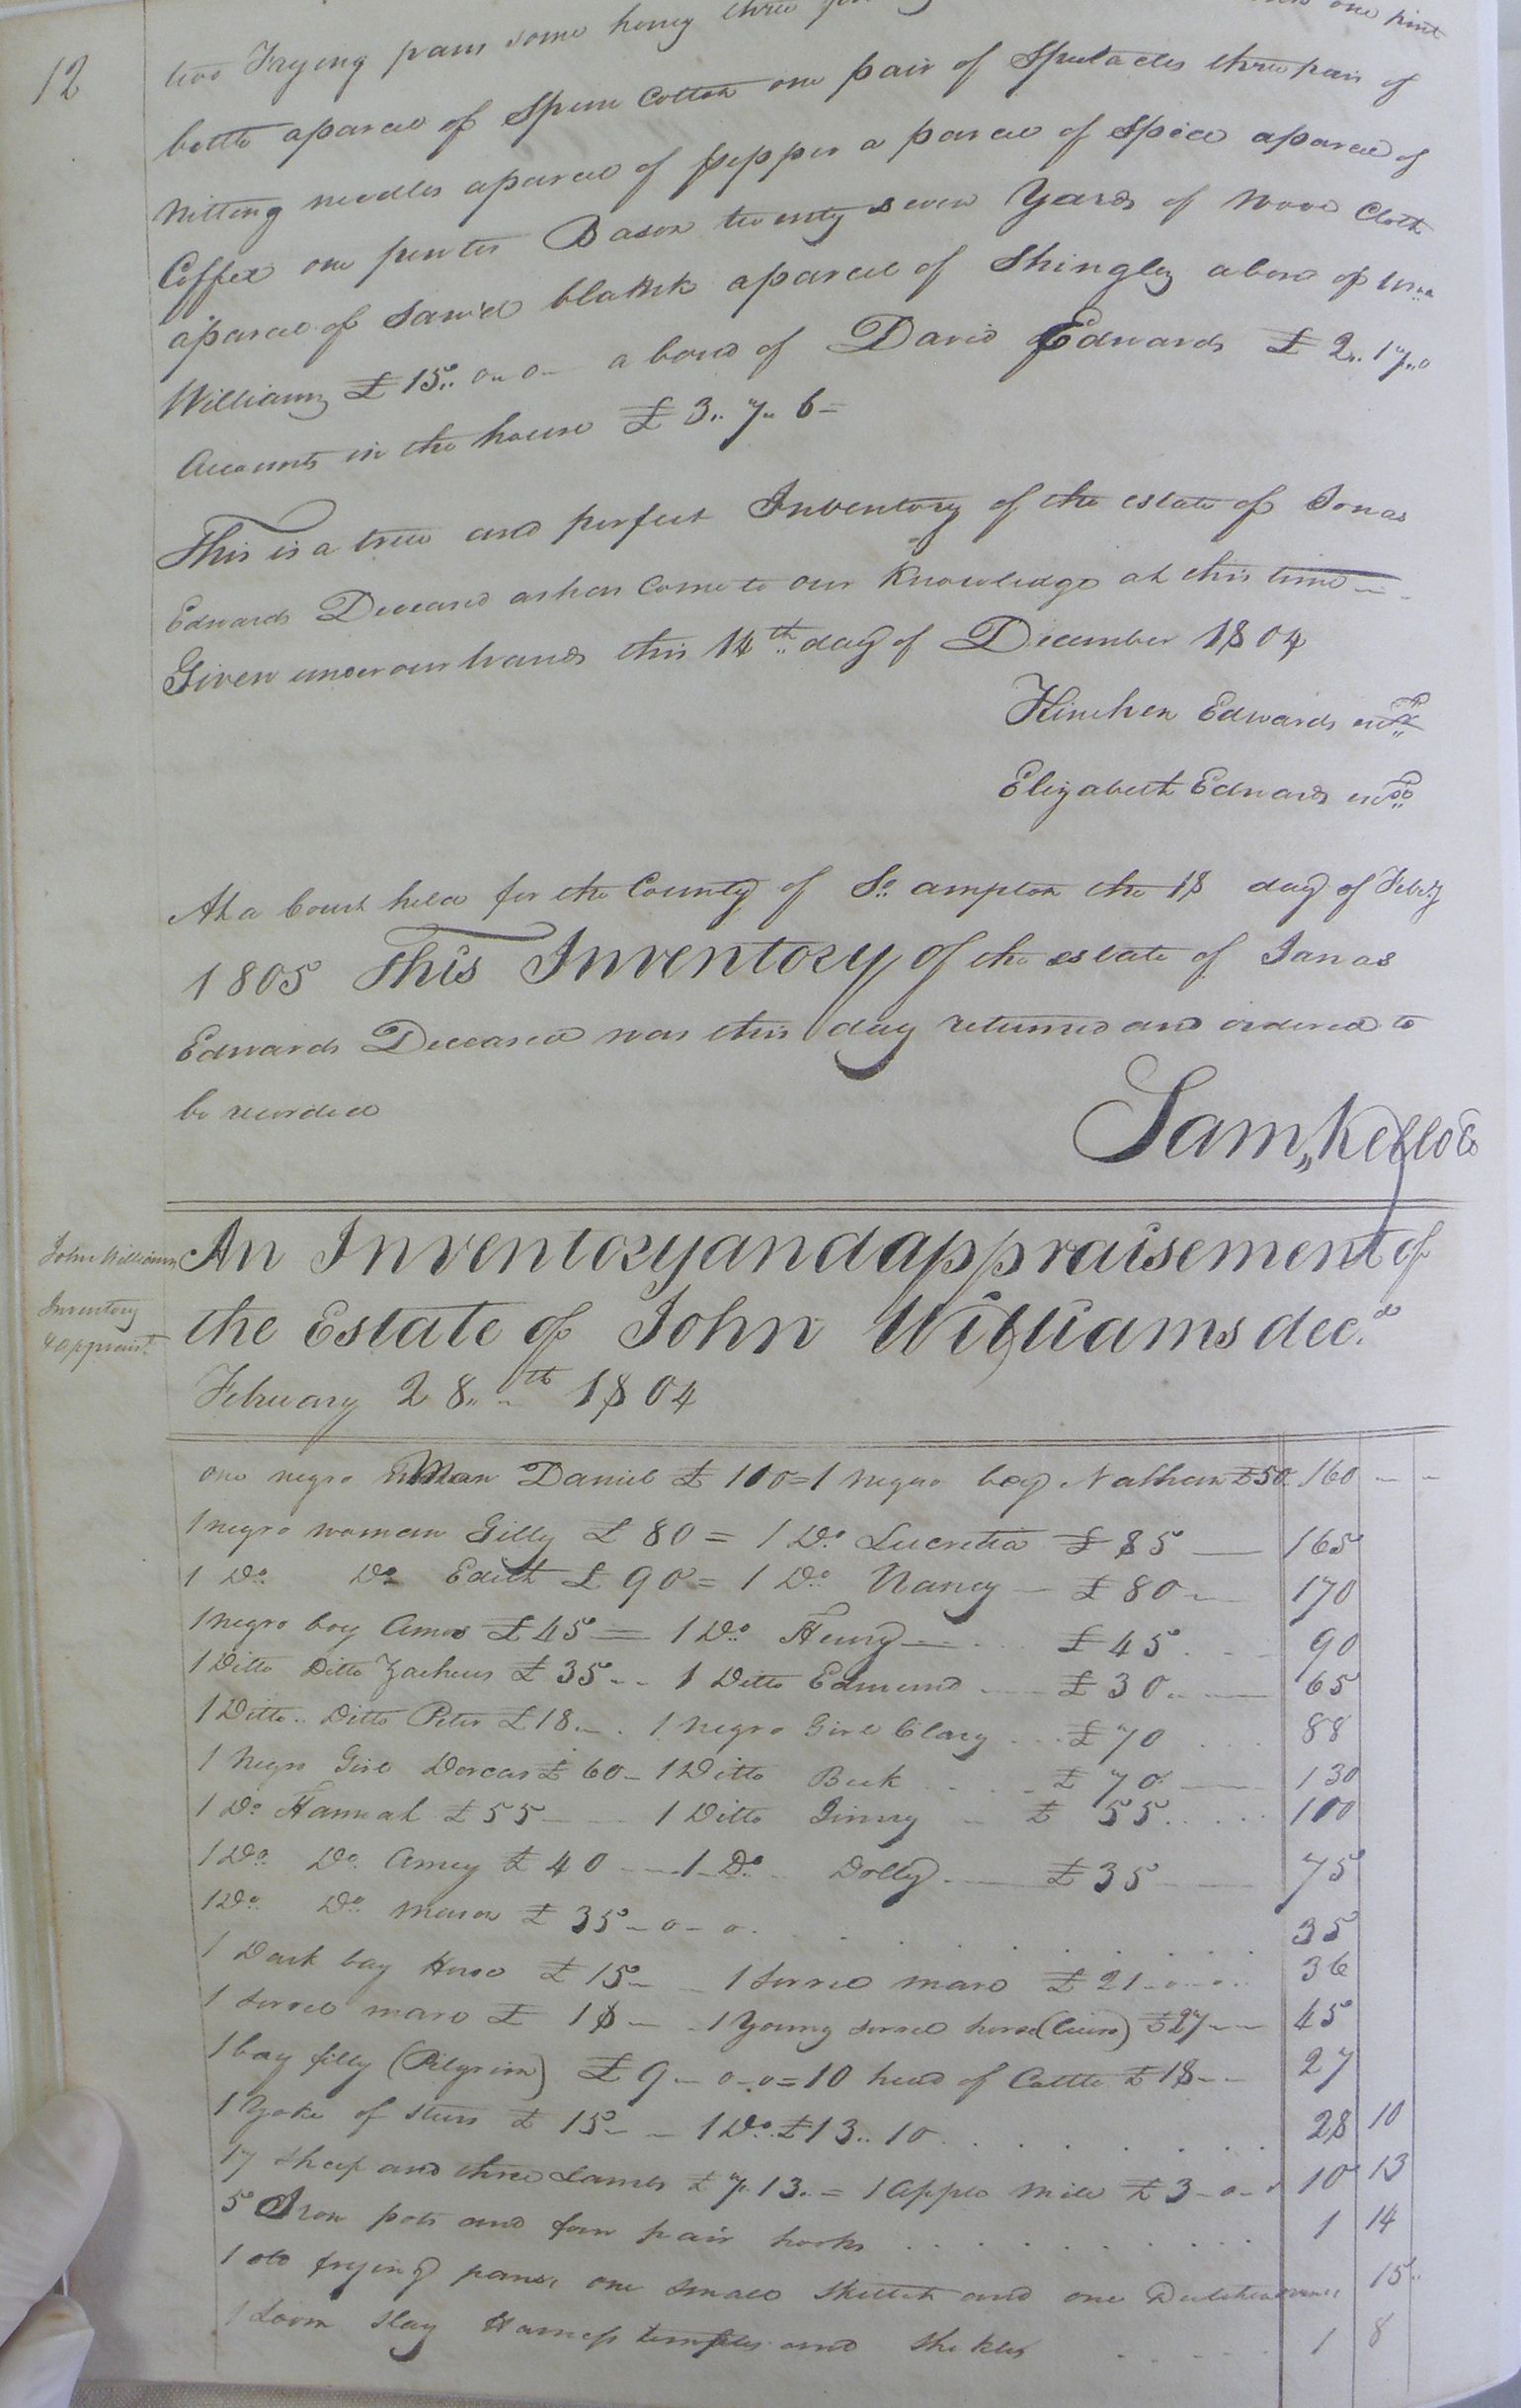 12
two Frying pans some honey three one pint
bottle aparcel of Spun Cotton one pair of Spectacles three pair of
Nitting needles aparcel of pepper a parcel of Spice aparcel of
Coffee one pewter Bason twenty seven Yards of wove Cloth
aparcel of Sawed plank aparcel of Shingles abond of
Williams £15..0..0 a bond of David Edwards £2..17..0
Accounts in the house £3..7..6=
This is a true and perfect Inventory of the estate of Jonas
Edwards Deceasd as has Come to our Knowledge at this time
Given under our hands this 14th day of December 1804
Hinchen Edwards
Elizabeth Edwards
At a Court held for the County of So. ampton the 18 day of Feb.y
1805 This Inventory of the estate of Jonas
Edwards Deceased was this day returned and ordered to
be recorded
Sam,, Kello Cc
John Williams
Inventory
& appraist.
An Inventory and appraisement of
the Estate of John Williams dec.d
February 28..th 1804
one negro Man Daniel £100=1 negro boy Nathan £50 160
1 negro woman Gilly £80=1 Do. Lucretia £85 165
1 Do. Do. Edith £90=1 Do. Nancy £80 170
1 negro boy Amos £45=1 Do. Henry £45 90
1 Ditto Ditto Zacheus £35 1 Ditto Edmund £30 65
1 Ditto.. Ditto Peter £18. 1 negro Girl Clary £70 88
1 Negro Girl Dorcas £60 1 Ditto Beck £70 130
1 Do. Hannah £55 1 Ditto Jinny £55 100
1 Do. Do. Amey £40 1 Do. Dolly £35 75
1 Do. Do. Mason £35-0-0. 35
1 Dark bay Horse £15 1 Sorrel mare £21-0-0 36
1 Sorrel mare £18 1 Young sorrel horse £27 45
1 bay filly (Pilgrim) £9-0-0=10 head of Cattle £18 27
1 Yoke of Steers £15 1 Do. £13..10 28 10
17 Sheep and three Lambs £7.13.=1 Apple Mill £3-0-0 10 13
5 Iron pots and four pair hooks 1 14
1 old frying pans, one small Skillet and one 15
1 Loom Slay Harness temples and Shckles 1 8